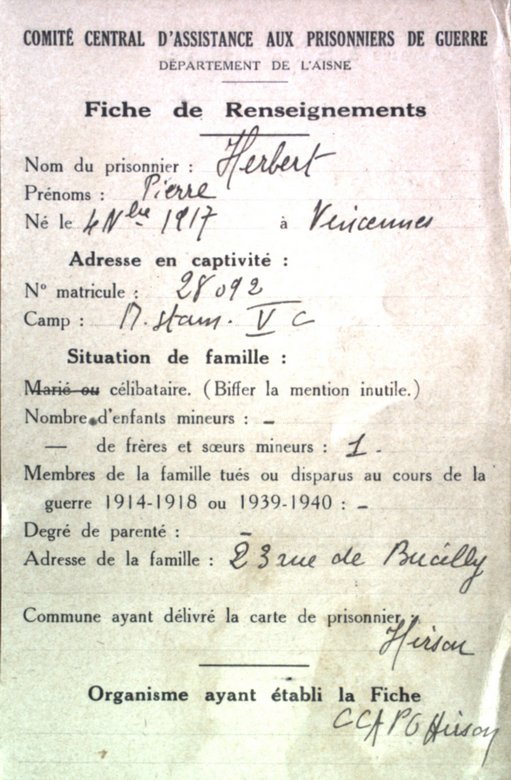 COMITÉ CENTRAL D'ASSISTANCE AUX PRISONNIERS DE GUERRE
DÉPARTEMENT DE L'AISNE
Fiche de Renseignements
Nom du prisonnier : Herbert
Prénoms : Pierre
Né le 4 Nbre 1917 à Vincennes
Adresse en captivité :
N° matricule : 28092
Camp : M. Stam. V C
Situation de famille :
Marié ou célibataire. (Biffer la mention inutile.)
Nombre d'enfants mineurs : –
— de frères et sœurs mineurs : 1.
Membres de la famille tués ou disparus au cours de la
guerre 1914-1918 ou 1939-1940 : –
Degré de parenté : –
Adresse de la famille : 23 rue de Bucilly
Commune ayant délivré la carte de prisonnier :
Hirson
Organisme ayant établi la Fiche
CCAPG Hirson